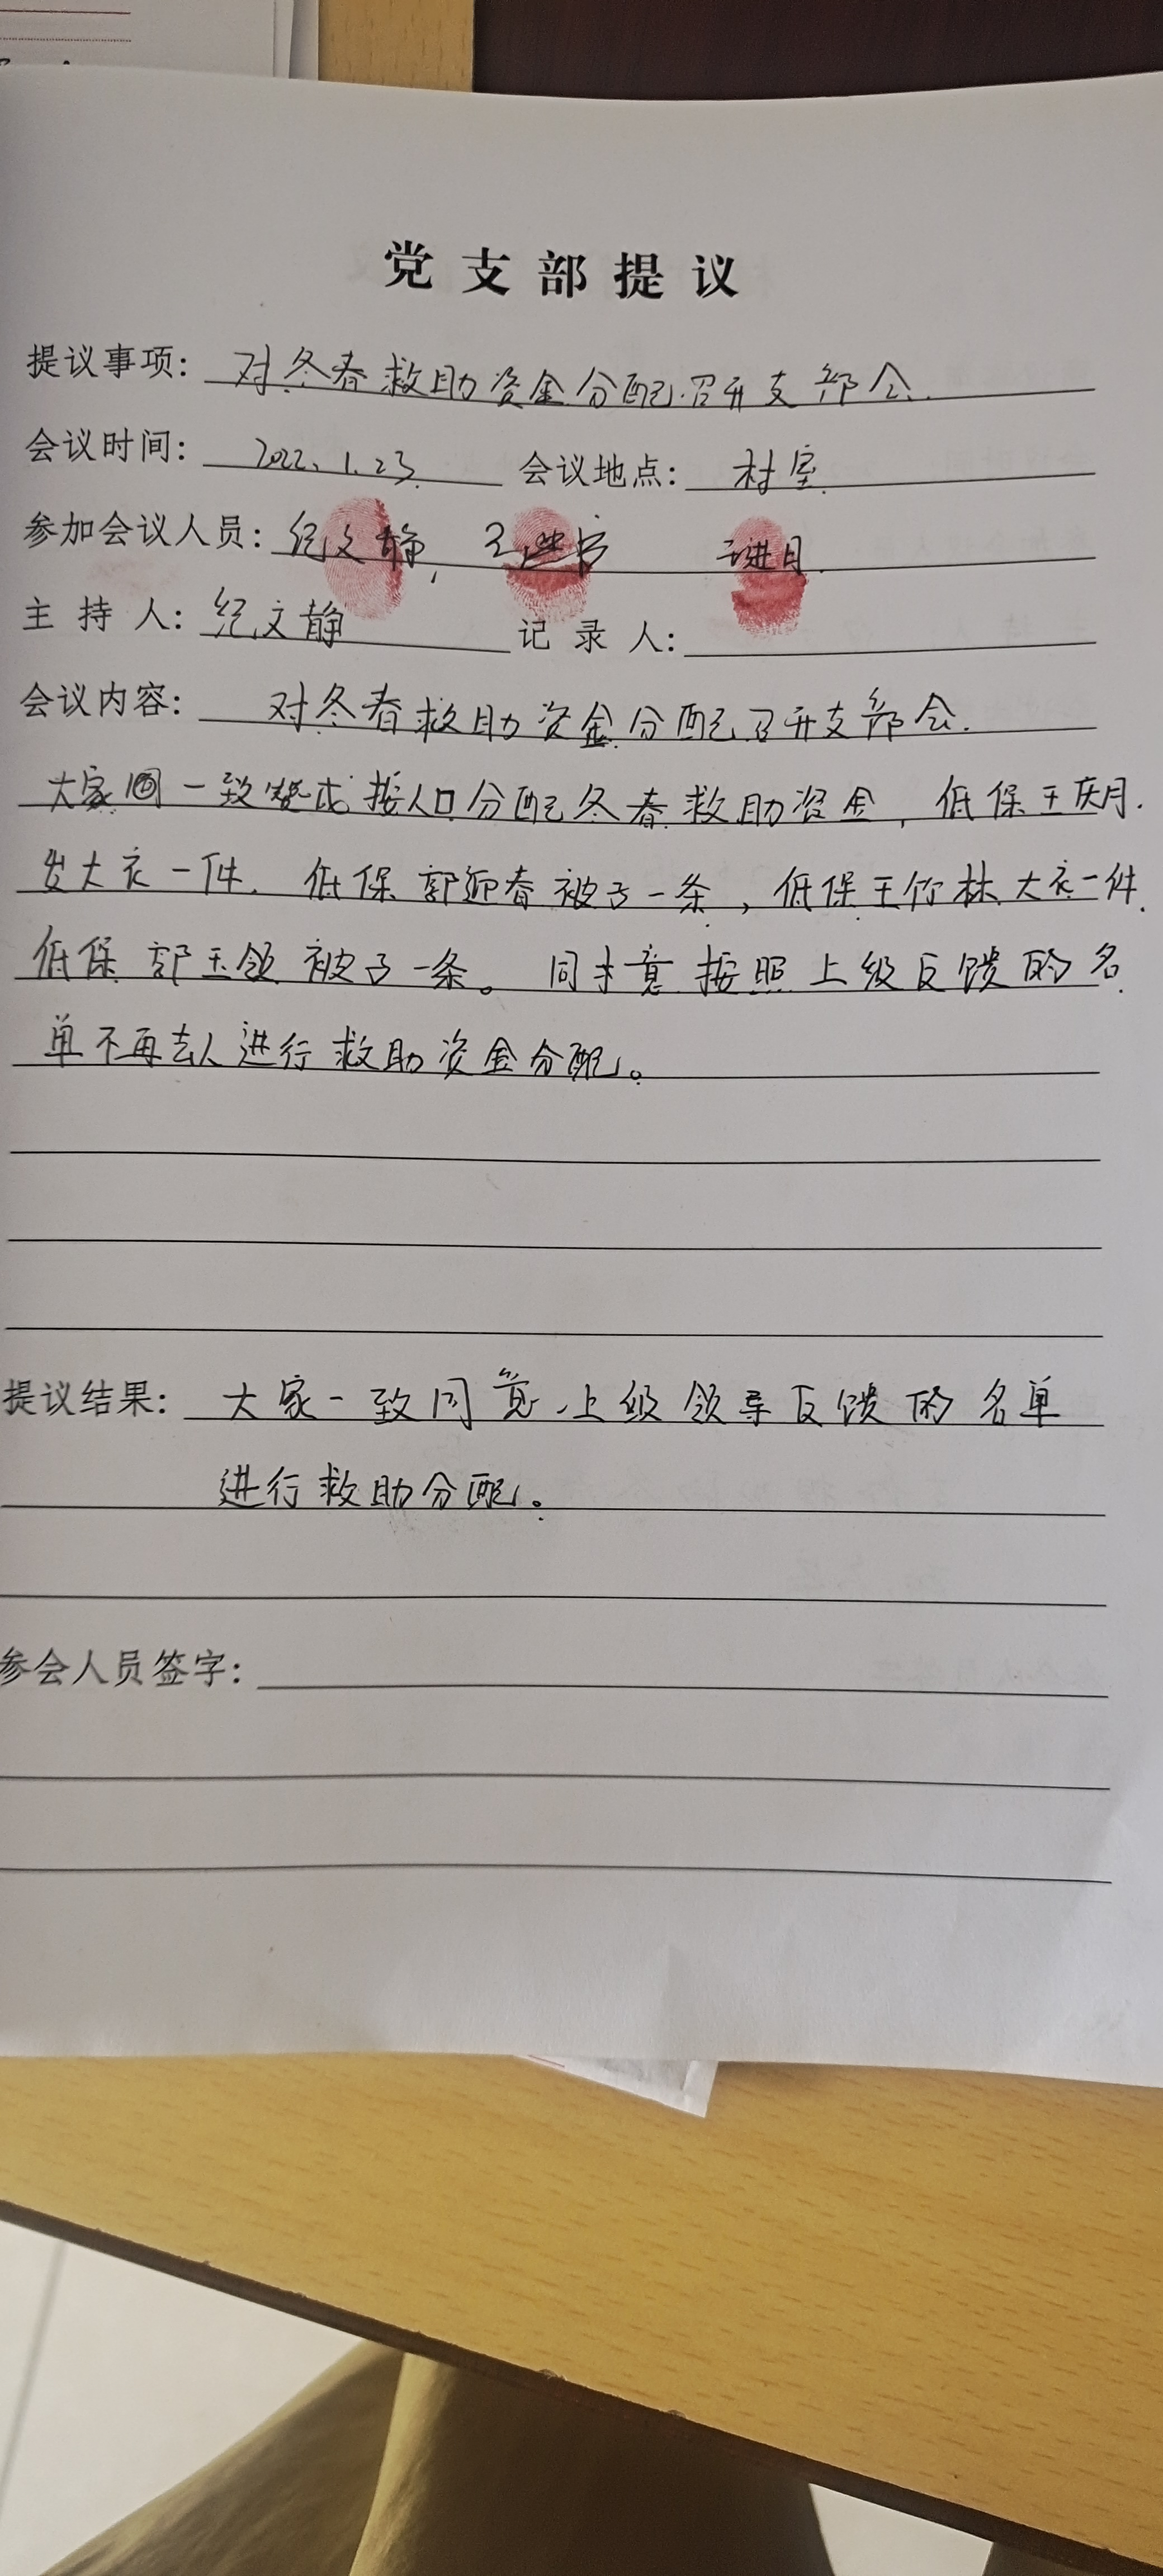 党支部提议
提议事项: 对冬春救助资金分配召开支部会.
会议时间: 2022.1.23. 会议地点: 村室.
参加会议人员: 纪文静, 王进月.
主持人: 纪文静 记录人:
会议内容: 对冬春救助资金分配召开支部会.
大家 一致赞成按人口分配冬春救助资金, 低保王庆月.
发大衣一件. 低保郭迎春被子一条, 低保王竹林大衣一件.
低保郭玉领被子一条。 同意按照上级反馈的名
单不再去人进行救助资金分配。
提议结果: 大家一致同意上级领导反馈的名单
进行救助分配。
参会人员签字: